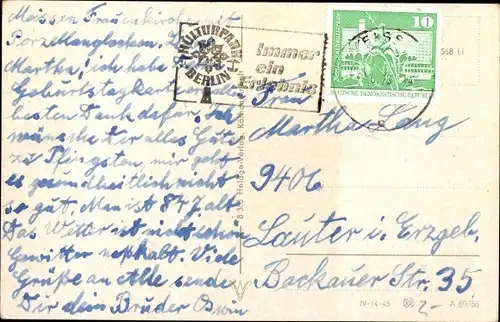 Meissen Frauenkirche mit
Porzellanglocken. L.
Martha! ich habe
Geburtstagkarte
besten Dank dafür. Ich
wünsche Dir alles Gute
zu Pfingsten, mir geht
es gesundheitlich nicht
so gut. Man ist 84 J. alt
Das Wetter ist nicht schön
Gewitter naßkalt. Viele
Grüße an Alle sendet
Dir dein Bruder Oswin
KULTURPARK
BERLIN
Immer
ein
Erlebnis
10
DEUTSCHE DEMOKRATISCHE REPUBLIK
Frau
Martha Lang
9406
Lauter i. Erzgeb.
Bockauer Str. 35
IV-14-45
2,-